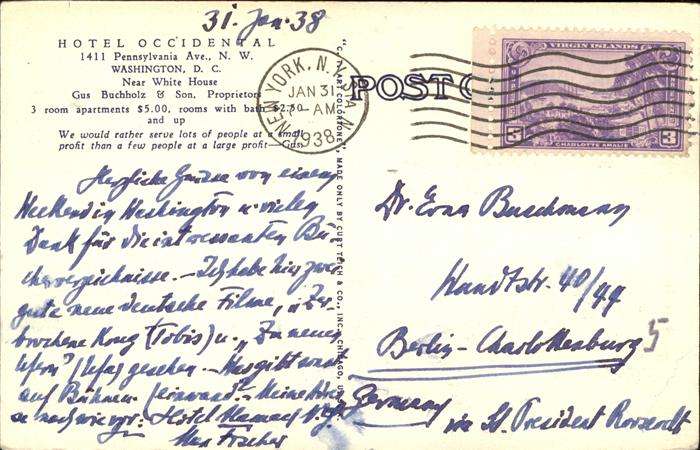 31. Jan. 38
HOTEL OCCIDENTAL
1411 Pennsylvania Ave., N. W.
WASHINGTON, D. C.
Near White House
Gus Buchholz & Son, Proprietors
3 room apartments $5.00, rooms with bath $2.50
and up
We would rather serve lots of people at a small
profit than a few people at a large profit—Gus.
"C. T. ART-COLORTONE" MADE ONLY BY CURT TEICH & CO., INC., CHICAGO, U.
NEW YORK, N.Y. STA.
JAN 31
AM
1938
POST C
VIRGIN ISLANDS
3
3
CHARLOTTE AMALIE
Herzliche Grüsse von einem
Weekend in Washington u. vielen
Dank für die interessanten Bü-
cherverzeichnisse. – Ich habe hier zwei
gute neue deutsche Filme, „Zer-
brochene Krug (Tobis) u. „Zu neuen
Ufern" (Ufa) gesehen. – Was gibt
auf Bühnen
nach wie vor: Hotel N.Y.
Max Fischer
Dr. Erna Buschmann
40/44
Berlin-Charlottenburg 5
Germany
via St. President Roosevelt